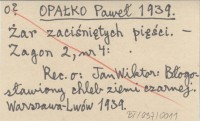 02 OPAŁKO Paweł 1939.
Żar zaciśniętych pięści. –
Zagon 2, nr 4:
Rec. o: Jan Wiktor: Błogo-
sławiony chleb ziemi czarnej.
Warszawa-Lwów 1939.